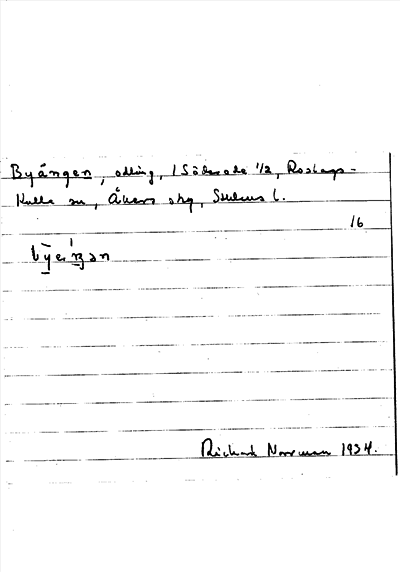 Byängen, odling, 1 Söderede 1/2, Roslags-
Kulla sn, Åkers skg, Sthlms l.
16
Richard Norrman 1934.